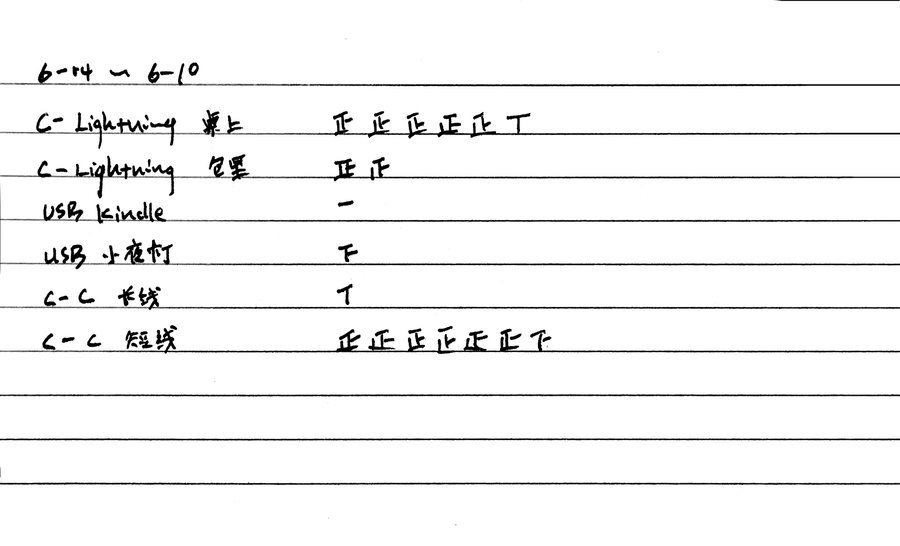 6-14 ~ 6-10
C-Lightning 桌上 正 正 正 正 正 丅
C-Lightning 包里 正 正
USB Kindle 一
USB 小夜灯 下
C-C 长线 丅
C-C 短线 正 正 正 正 正 正 下